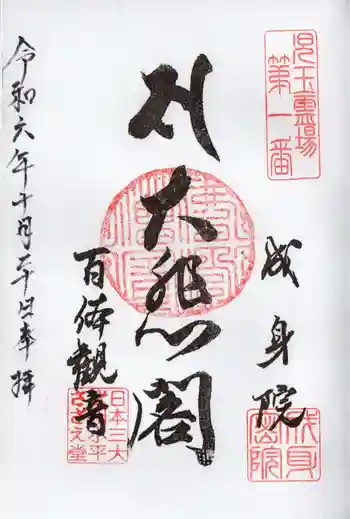 児玉霊場
第一番
成身院
成身
密院
大悲閣
百体観音
日本三大
さざえ堂
令和六年十月二十日奉拝